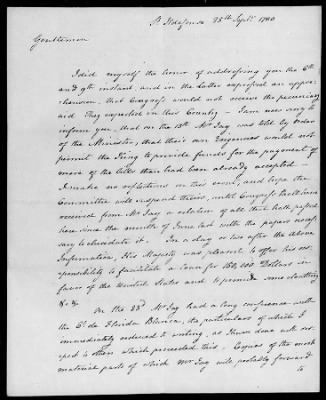 St. Ildefonso 25th Septr. 1780
Gentlemen
I did myself the honor of addressing you the 6th
and 9th instant, and in the latter expressed an appre-
hension, that Congress would not receive the pecuniary
aid They expected in this Country - I am now sorry to
inform you, that on the 15th Mr Jay was told by Order
of the Minister, that their own Exigences would not
permit the King to provide funds for the payment of
more of the bills than had been already accepted -
I make no reflections on this event, and hope the
Committee will suspend theirs, until Congress hath been
received from Mr Jay a relation of all that hath passed
here since the month of June last with the papers neces-
sary to elucidate it. In a day or two after the above
Information, His Majesty was pleased to offer his res-
ponsibility to facilitate a Loan for 150,000 Dollars in
favor of the United States and to promise some cloathing
&c &c
On the 23d Mr Jay had a long conference with
the Ct. de Florida Blanca, the particulars of which I
immediately reduced to writing, as I have done with res-
pect to others which preceded this, Copies of the most
material parts of which Mr Jay will probably forward
to